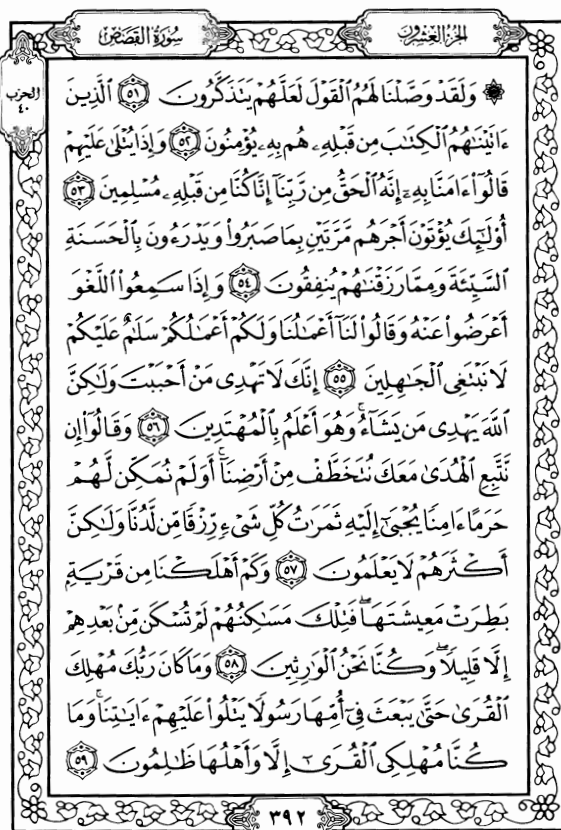 سُورَةُ القَصَصِ
الجزء العشرون
الحزب
٤٠
۞ وَلَقَدْ وَصَّلْنَا لَهُمُ ٱلْقَوْلَ لَعَلَّهُمْ يَتَذَكَّرُونَ ٥١ ٱلَّذِينَ
ءَاتَيْنَٰهُمُ ٱلْكِتَٰبَ مِن قَبْلِهِۦ هُم بِهِۦ يُؤْمِنُونَ ٥٢ وَإِذَا يُتْلَىٰ عَلَيْهِمْ
قَالُوٓا۟ ءَامَنَّا بِهِۦٓ إِنَّهُ ٱلْحَقُّ مِن رَّبِّنَآ إِنَّا كُنَّا مِن قَبْلِهِۦ مُسْلِمِينَ ٥٣
أُو۟لَٰٓئِكَ يُؤْتَوْنَ أَجْرَهُم مَّرَّتَيْنِ بِمَا صَبَرُوا۟ وَيَدْرَءُونَ بِٱلْحَسَنَةِ
ٱلسَّيِّئَةَ وَمِمَّا رَزَقْنَٰهُمْ يُنفِقُونَ ٥٤ وَإِذَا سَمِعُوا۟ ٱللَّغْوَ
أَعْرَضُوا۟ عَنْهُ وَقَالُوا۟ لَنَآ أَعْمَٰلُنَا وَلَكُمْ أَعْمَٰلُكُمْ سَلَٰمٌ عَلَيْكُمْ
لَا نَبْتَغِى ٱلْجَٰهِلِينَ ٥٥ إِنَّكَ لَا تَهْدِى مَنْ أَحْبَبْتَ وَلَٰكِنَّ
ٱللَّهَ يَهْدِى مَن يَشَآءُ ۚ وَهُوَ أَعْلَمُ بِٱلْمُهْتَدِينَ ٥٦ وَقَالُوٓا۟ إِن
نَّتَّبِعِ ٱلْهُدَىٰ مَعَكَ نُتَخَطَّفْ مِنْ أَرْضِنَآ ۚ أَوَلَمْ نُمَكِّن لَّهُمْ
حَرَمًا ءَامِنًا يُجْبَىٰٓ إِلَيْهِ ثَمَرَٰتُ كُلِّ شَىْءٍ رِّزْقًا مِّن لَّدُنَّا وَلَٰكِنَّ
أَكْثَرَهُمْ لَا يَعْلَمُونَ ٥٧ وَكَمْ أَهْلَكْنَا مِن قَرْيَةٍۭ
بَطِرَتْ مَعِيشَتَهَا ۖ فَتِلْكَ مَسَٰكِنُهُمْ لَمْ تُسْكَن مِّنۢ بَعْدِهِمْ
إِلَّا قَلِيلًا ۖ وَكُنَّا نَحْنُ ٱلْوَٰرِثِينَ ٥٨ وَمَا كَانَ رَبُّكَ مُهْلِكَ
ٱلْقُرَىٰ حَتَّىٰ يَبْعَثَ فِىٓ أُمِّهَا رَسُولًا يَتْلُوا۟ عَلَيْهِمْ ءَايَٰتِنَا ۚ وَمَا
كُنَّا مُهْلِكِى ٱلْقُرَىٰٓ إِلَّا وَأَهْلُهَا ظَٰلِمُونَ ٥٩
٣٩٢